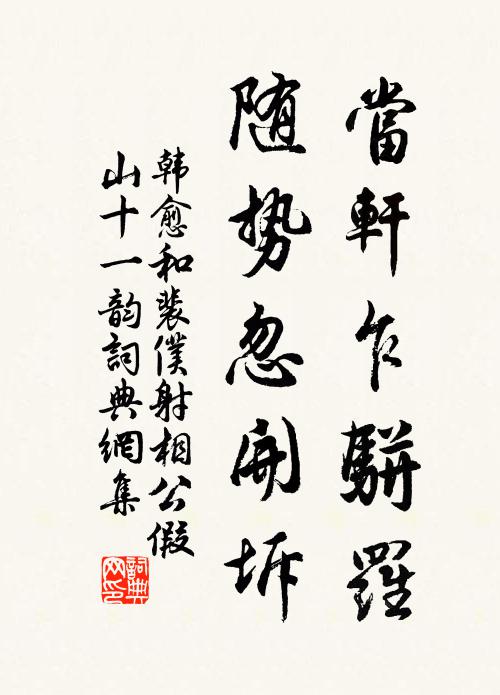 當軒乍駢羅
随勢忽開坼
韩愈和裴僕射相公假
山十一韵詞典網集
詞典
网印